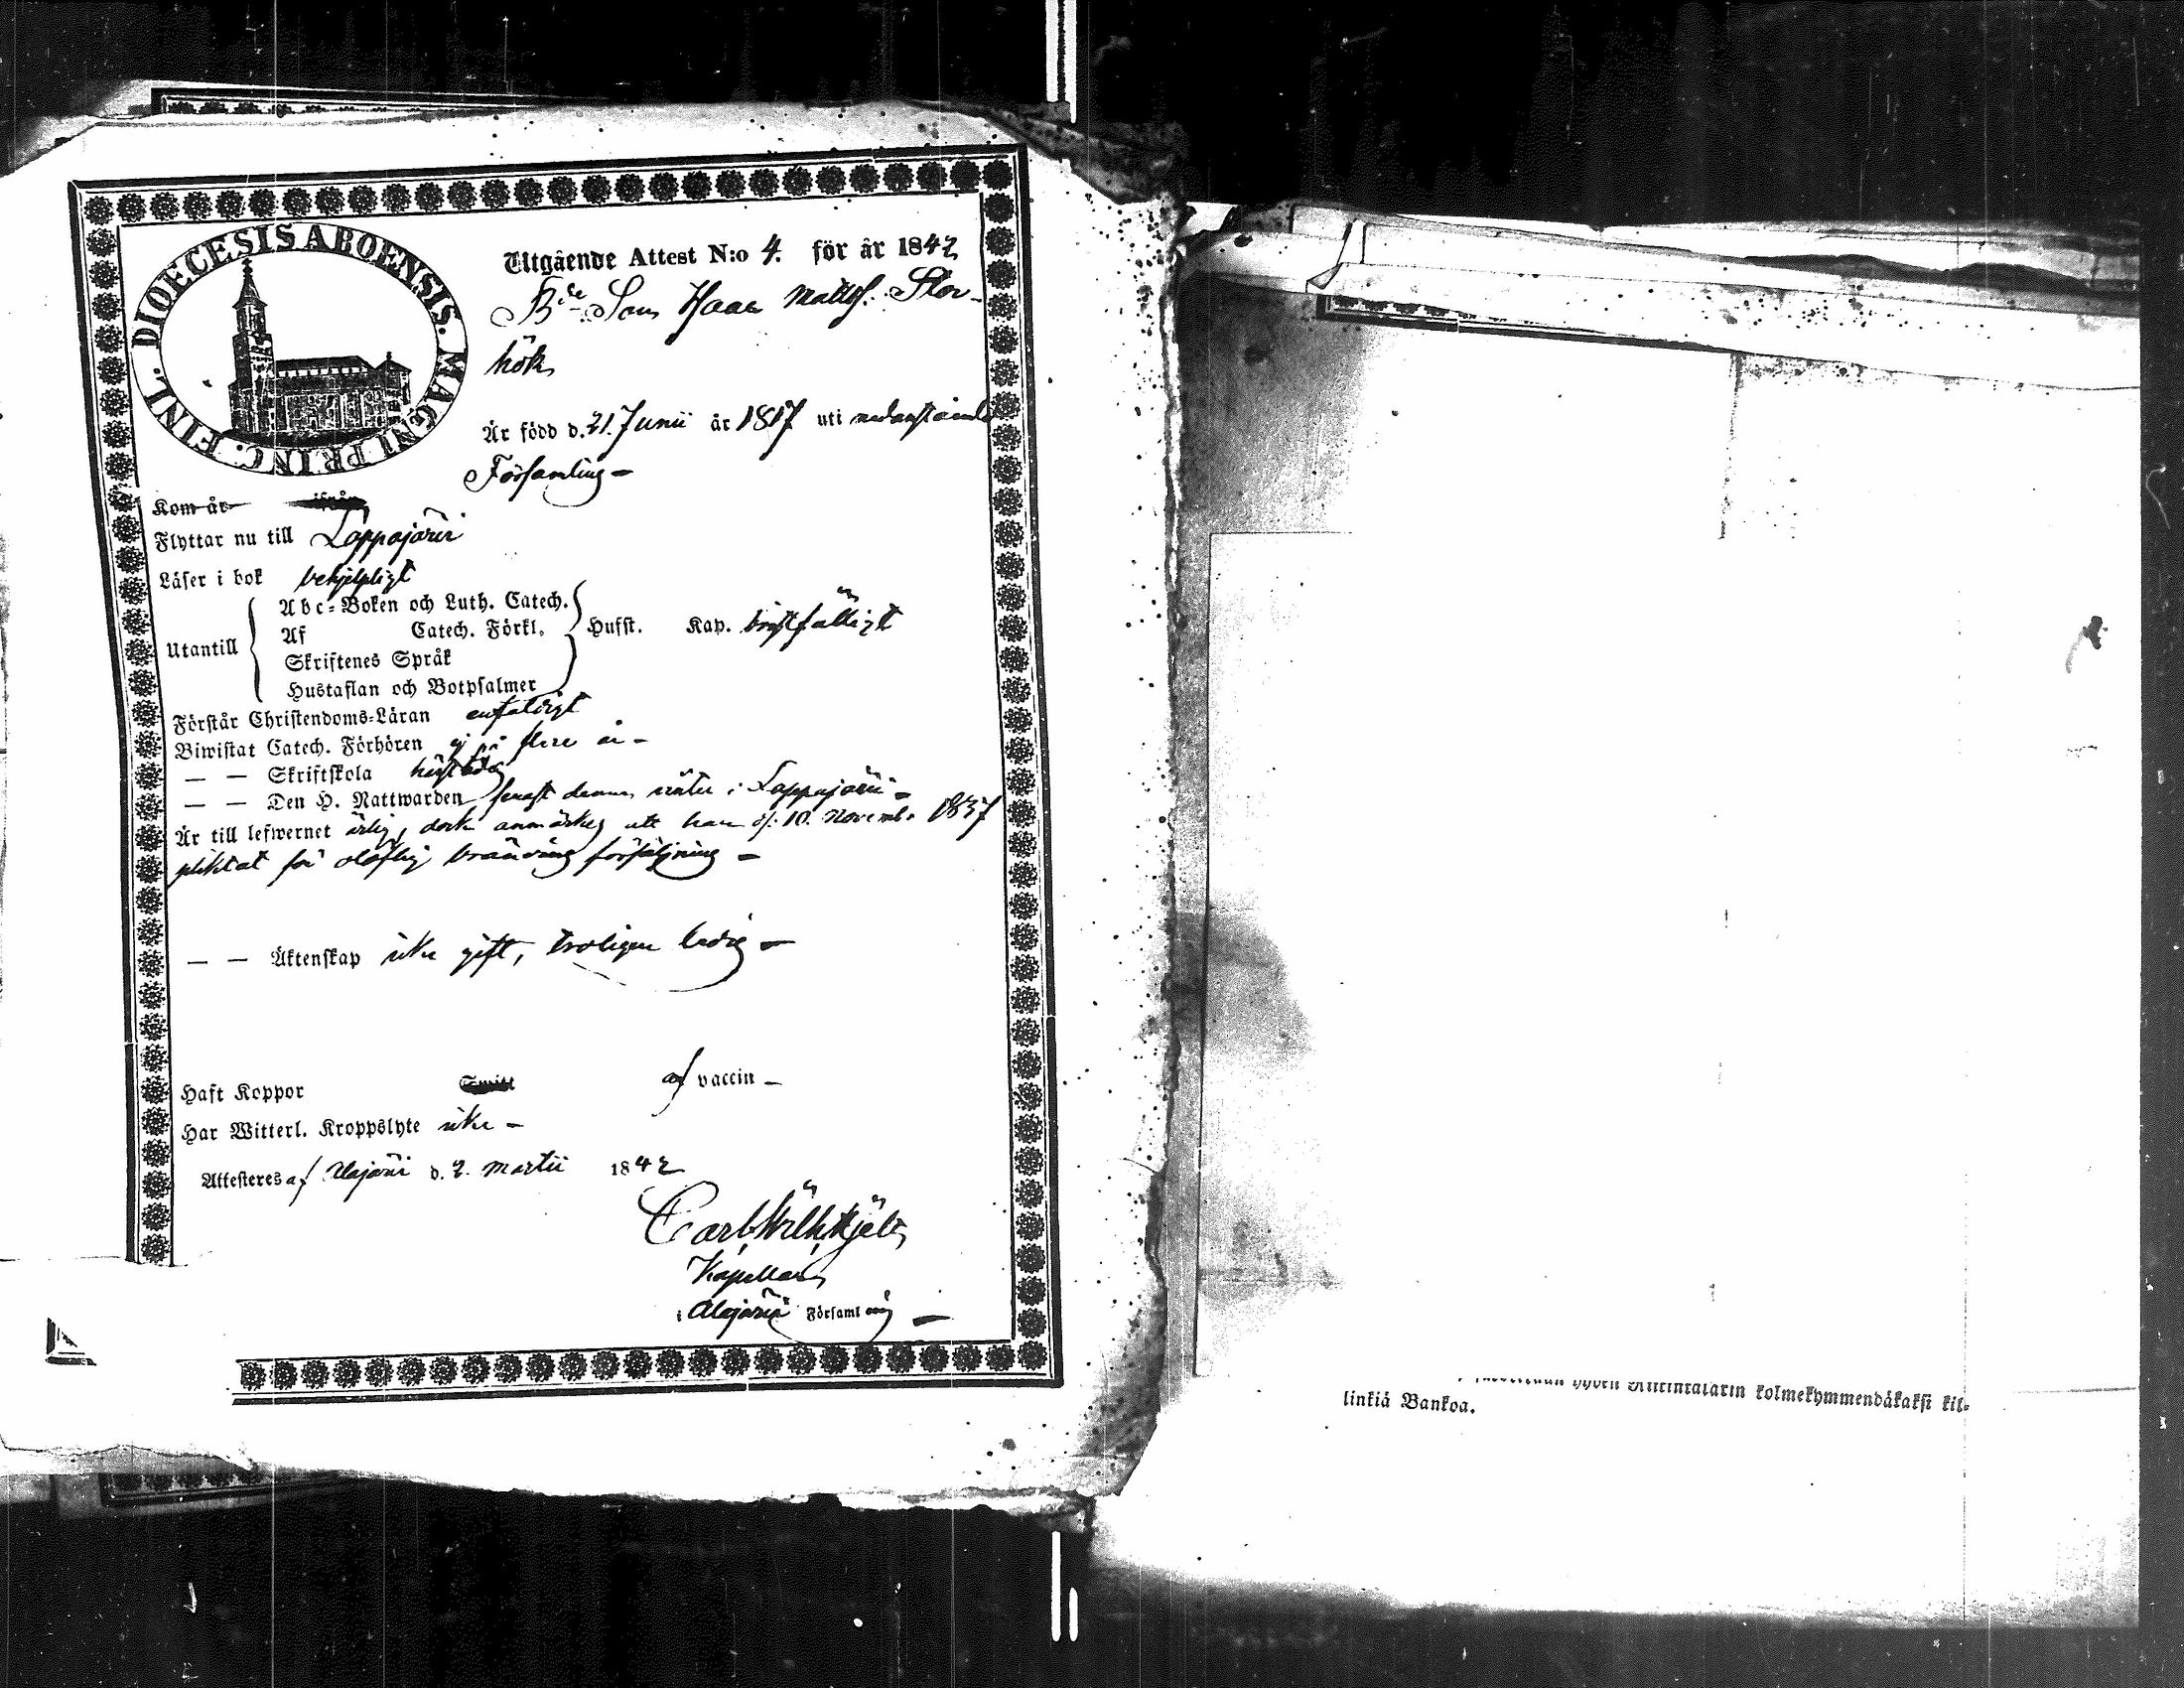 DIOECESIS ABOENSIS. MAGNI PRINC. FINL.
Utgående Attest N:o 4. för år 1842
Bde Son Isaac Mattss. Stor-
hök
Är född d. 21. Junii år 1817 uti nedanstående
Församling -
Kom år ifrån
Flyttar nu till Lappajärvi
Läser i bok behjelpligt
Utantill
Abc-Boken och Luth. Catech.
Af Catech. Förkl.
Skriftenes Språk
Hustaflan och Botpsalmer
Hufst. Kap. bristfälligt
Förstår Christendoms-Läran enfaldigt
Biwistat Catech. Förhören ej på flere år -
— — Skriftskola
— — Den H. Nattwarden senast denna vinter i Lappajärvi -
Är till lefwernet ärlig, dock anmärkes att han d. 10. Novemb. 1837
pliktat för olaflig bränvins försäljning -
— — Äktenskap icke gift, troligen ledig -
Haft Koppor af vaccin -
Har Witterl. Kroppslyte icke -
Attesteras af Alajärvi d. 2. Martii 1842
Carl Wilh.
Kapellan
i Alajärvi Församling —
kolmekymmendäkaksi kil-
linkiä Bankoa.